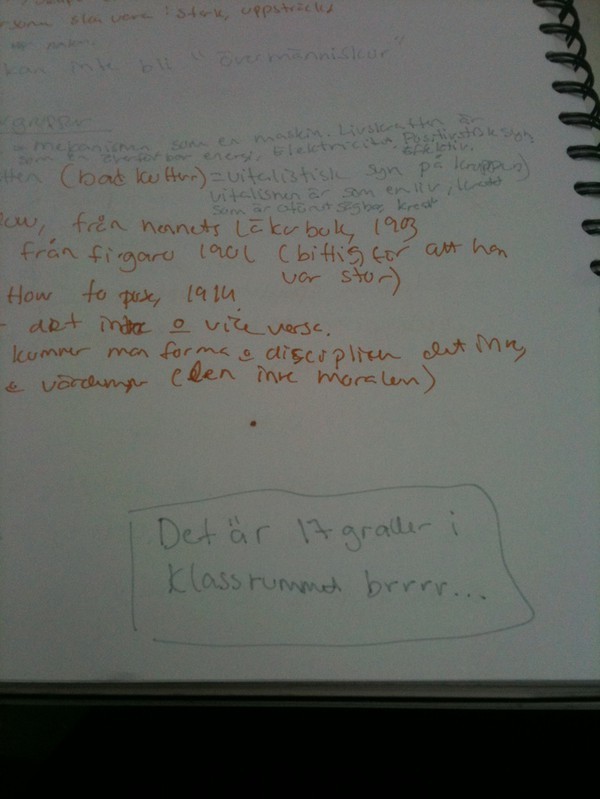 ska vara: stark, uppsträckt
kan inte bli "övermänniskor"
mekanismen som en maskin. Livskraften är
som en överförbar energi, Elektricitet. Positivistisk syn
(bad kulturen) = vitalistisk syn på kroppen)
vitalismen är som en liv, kraft
som är oförutsägbar, kreativ
från hennets Läkarbok, 1903
från figaro 1901 (biffig för att han
var stor)
How to pose, 1914.
det inre o vice versa.
kunner man forma o disciplinera det inre,
o värderingar (den inre moralen)
Det är 17 grader i
klassrummet brrrr...